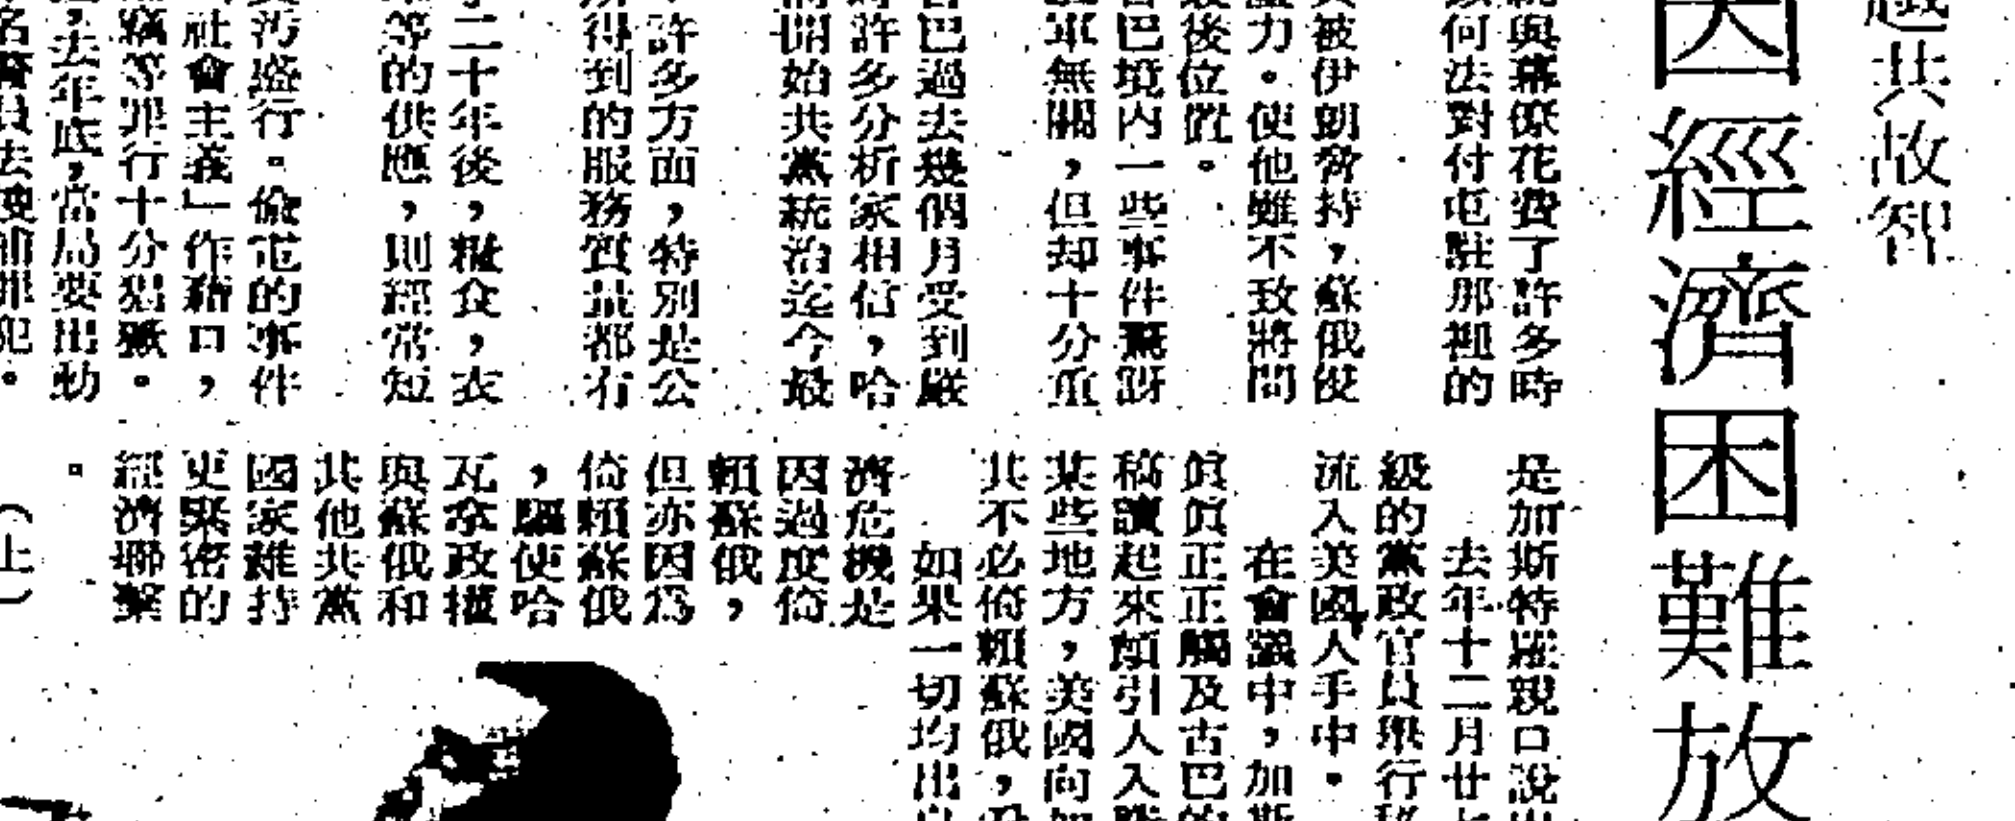 越共故智
因經濟困難放
與幕僚花費了許多時
何法對付屯駐那裡的
被伊朗脅持，蘇俄從
力。使他雖不致將問
後位置。
巴境內一些事件驚訝
軍無關，但却十分重
巴過去幾個月受到嚴
許多分析家相信，哈
開始共黨統治迄今最
許多方面，特別是公
所得到的服務質量都有
二十年後，糧食，衣
等的供應，則經常短
污盛行。偷電的事件
社會主義」作藉口，
竊等罪行十分猖獗。
去年底，當局要出動
名警員去搜捕罪犯。
是加斯特羅親口說出
去年十二月廿七
級的黨政官員舉行秘
流入美國人手中。
在會議中，加斯
眞眞正正觸及古巴的
稿讀起來頗引人入勝
某些地方，美國向如
其不必倚賴蘇俄，
如果一切均出
濟危機是
因過度倚
賴蘇俄，
但亦因爲
倚賴蘇俄
，驅使哈
瓦拿政權
與蘇俄和
其他共黨
國家維持
更緊密的
經濟聯繫
。
（上）